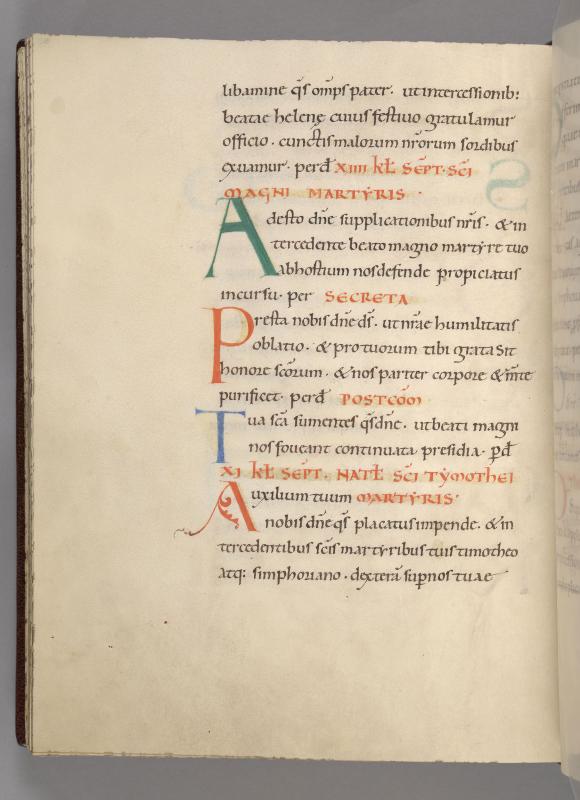 libamine q̄s om̄ps pater. ut intercessionib:
beatae helenę cuius festiuo gratulamur
officio. cunctis malorum nr̄orum sordibus
exuamur. perd̄ XIIII kł. SEPT. SC̄I
MAGNI MARTYRIS.
Adesto dn̄e supplicationibus nr̄is. & in
tercedente beato magno martyre tuo
ab hostium nos defende propiciatus
incursu. per SECRETA
Presta nobis dn̄e ds̄. ut nr̄ae humilitatis
oblatio. & pro tuorum tibi grata sit
honore sc̄orum. & nos pariter corpore & m̄te
purificet. perd̄ POSTCOM̄
Tua sc̄a sumentes q̄s dn̄e. ut beati magni
nos foueant continuata presidia. p̄d̄
XI kł. SEPT. NATł. SC̄I TYMOTHEI
Auxilium tuum MARTYRIS.
nobis dn̄e q̄s placatus impende. & in
tercedentibus sc̄is martyribus tuis timotheo
atq: simphoriano. dexterā sup nos tuae